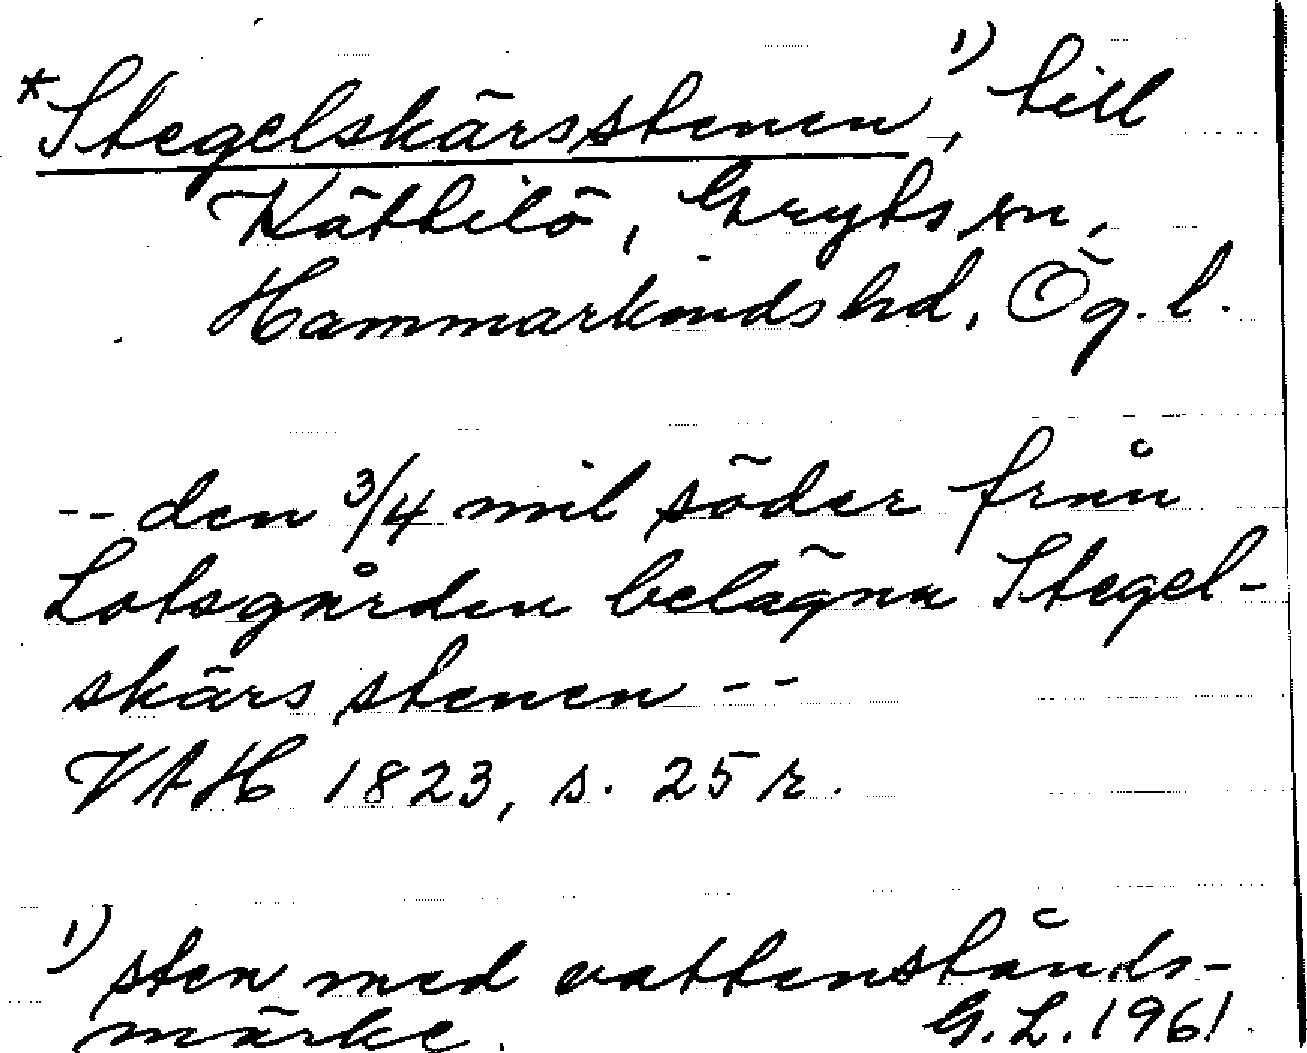 *Stegelskärsstenen, ¹⁾ till
Kättilö, Gryts sn,
Hammarkinds hd, Ög. l.
-- den 3/4 mil söder från
Lotsgården belägna Stegel-
skärs stenen --
VAH 1823, s. 25 r.
¹⁾ sten med vattenstånds-
märke.
G. L. 1961.